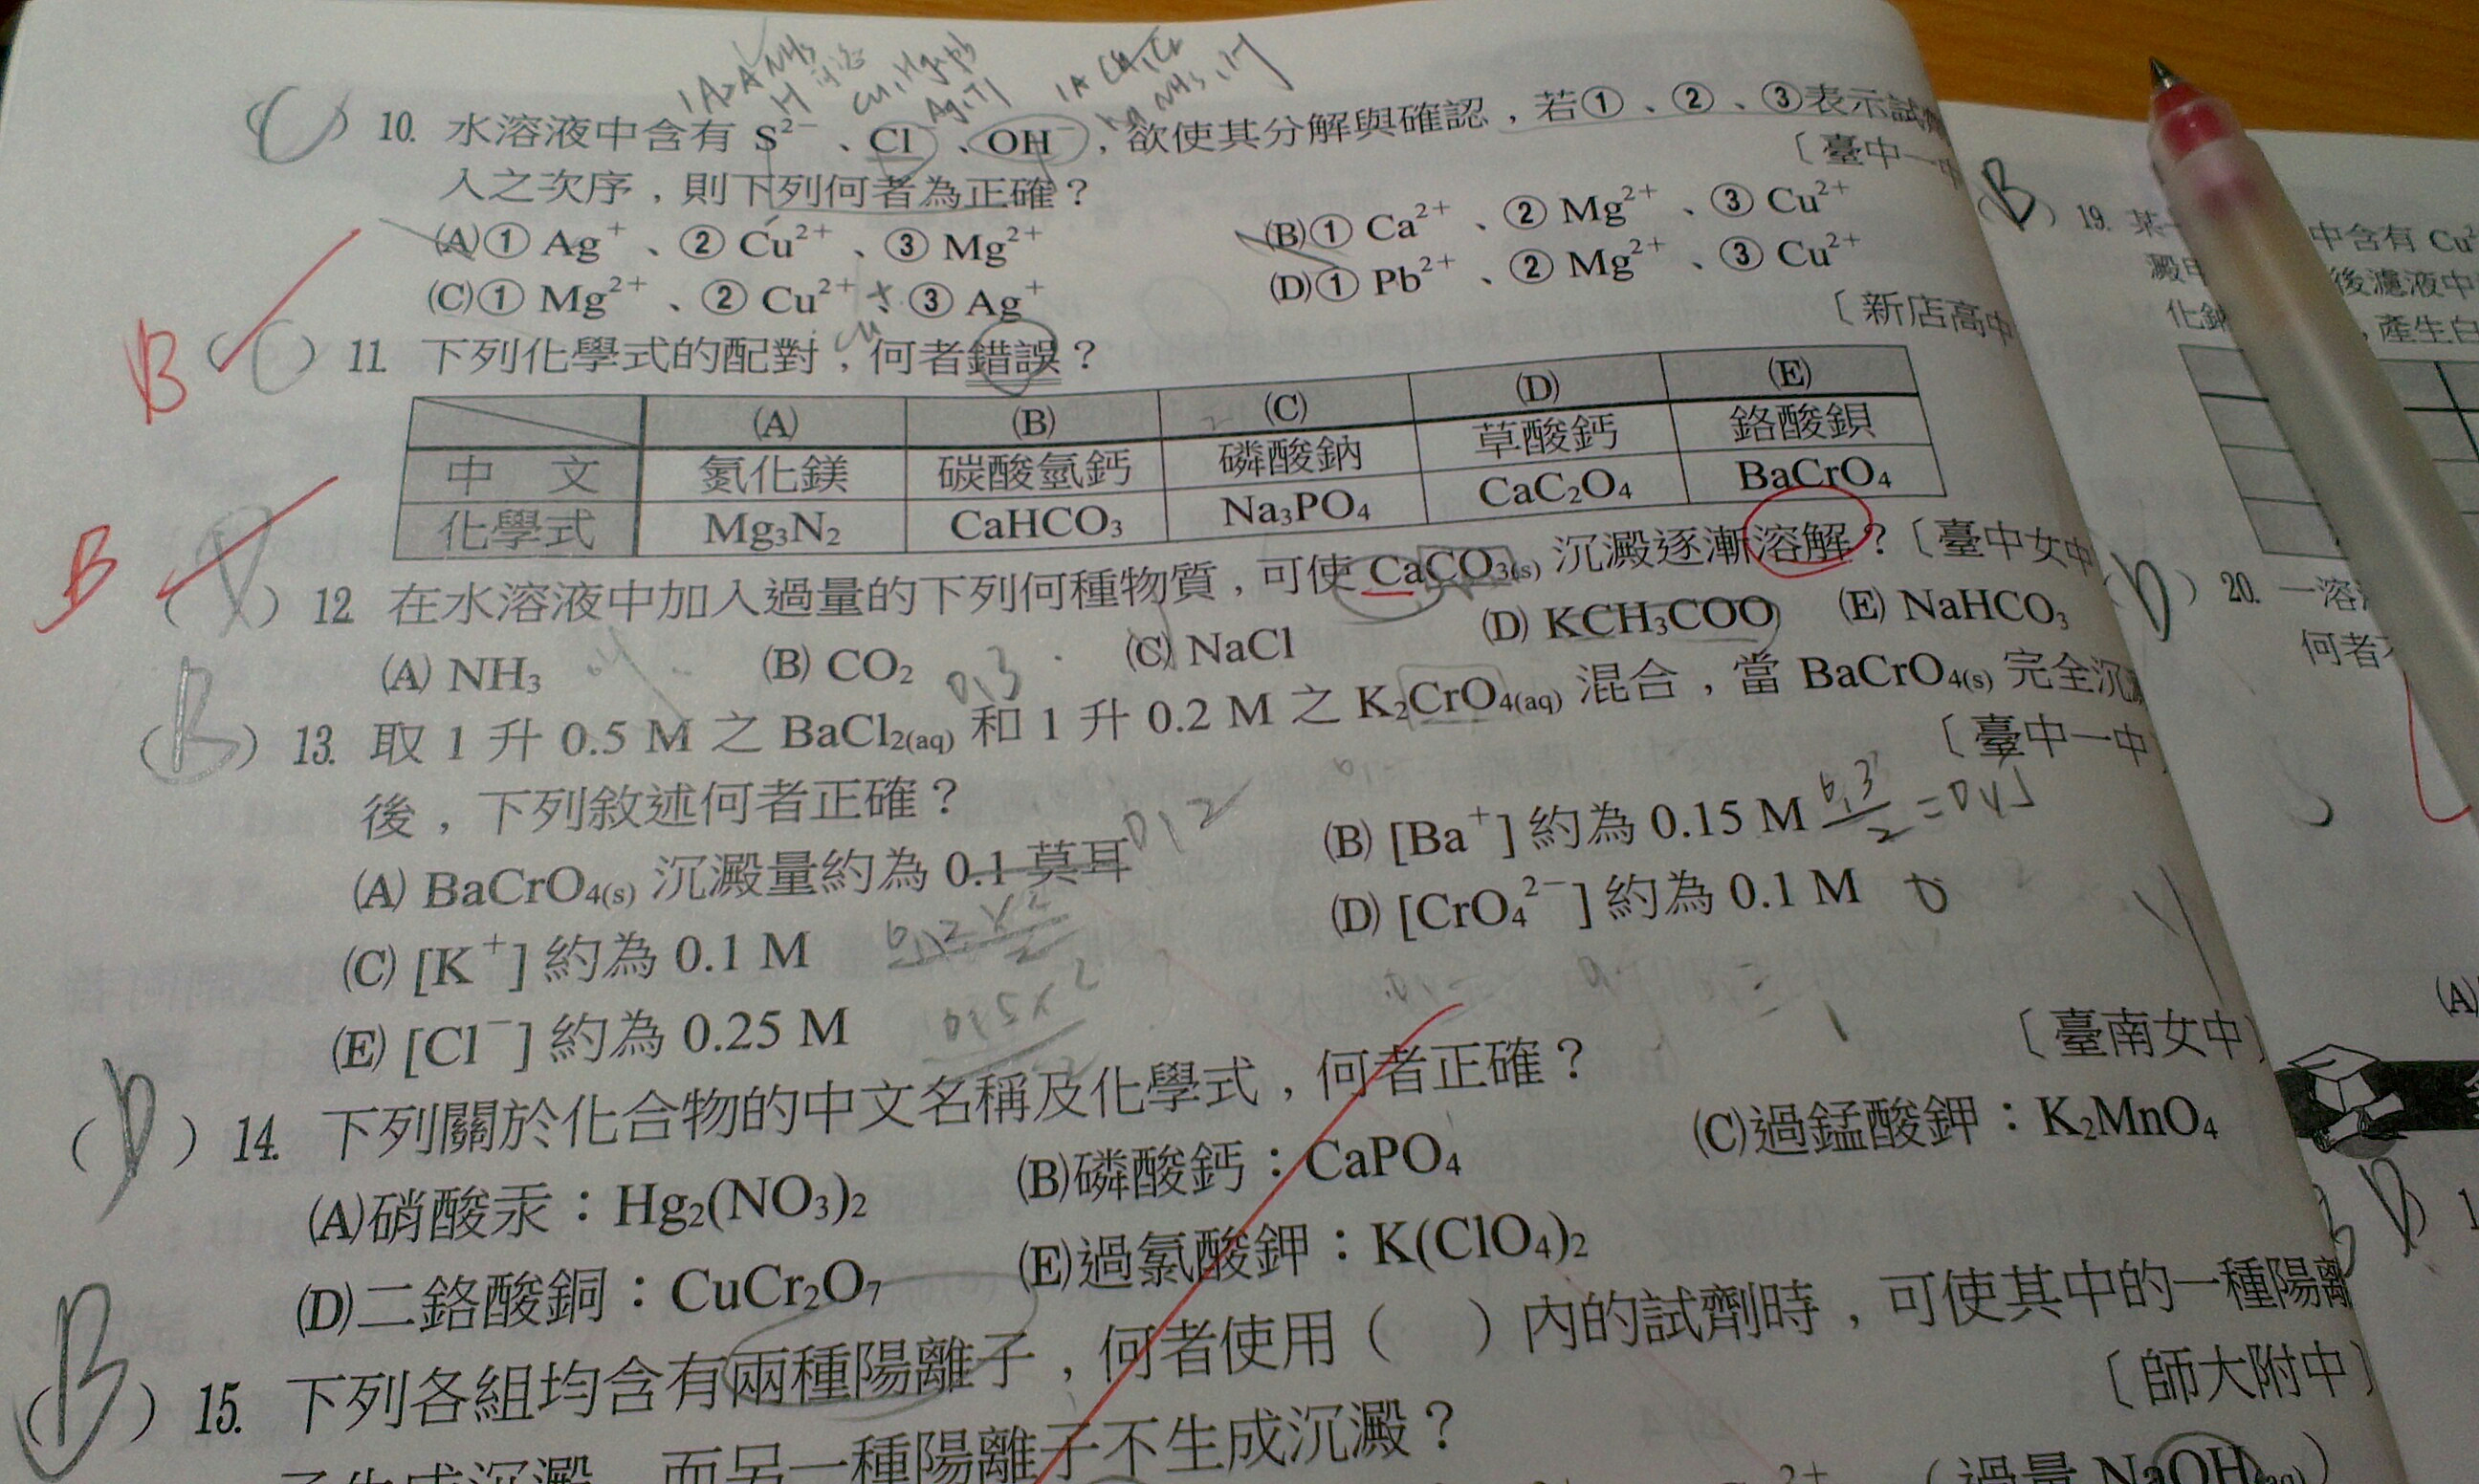 (C) 10. 水溶液中含有 S²⁻、Cl⁻、OH⁻，欲使其分解與確認，若①、②、③表示試
入之次序，則下列何者為正確？〔臺中一中
(A)① Ag⁺、② Cu²⁺、③ Mg²⁺ (B)① Ca²⁺、② Mg²⁺、③ Cu²⁺
(C)① Mg²⁺、② Cu²⁺、③ Ag⁺ (D)① Pb²⁺、② Mg²⁺、③ Cu²⁺
〔新店高中
B (C) 11. 下列化學式的配對，何者錯誤？
(A) (B) (C) (D) (E)
中 文 氮化鎂 碳酸氫鈣 磷酸鈉 草酸鈣 鉻酸鋇
化學式 Mg₃N₂ CaHCO₃ Na₃PO₄ CaC₂O₄ BaCrO₄
B (D) 12 在水溶液中加入過量的下列何種物質，可使 CaCO₃(s) 沉澱逐漸溶解？〔臺中女中
(A) NH₃ (B) CO₂ (C) NaCl (D) KCH₃COO (E) NaHCO₃
0.3
(B) 13. 取 1 升 0.5 M 之 BaCl₂(aq) 和 1 升 0.2 M 之 K₂CrO₄(aq) 混合，當 BaCrO₄(s) 完全沉
後，下列敘述何者正確？〔臺中一中
(A) BaCrO₄(s) 沉澱量約為 0.1 莫耳 0.2 (B) [Ba⁺] 約為 0.15 M
(C) [K⁺] 約為 0.1 M (D) [CrO₄²⁻] 約為 0.1 M
(E) [Cl⁻] 約為 0.25 M
(D) 14. 下列關於化合物的中文名稱及化學式，何者正確？〔臺南女中〕
(A)硝酸汞：Hg₂(NO₃)₂ (B)磷酸鈣：CaPO₄ (C)過錳酸鉀：K₂MnO₄
(D)二鉻酸銅：CuCr₂O₇ (E)過氯酸鉀：K(ClO₄)₂
(B) 15. 下列各組均含有兩種陽離子，何者使用（ ）內的試劑時，可使其中的一種陽離
子生成沉澱，而另一種陽離子不生成沉澱？〔師大附中〕
（過量 NaOH(aq)）
(B) 19. 某一
中含有 Cu²
後濾液中
，產生白
(D) 20. 一溶
何者不
(A)